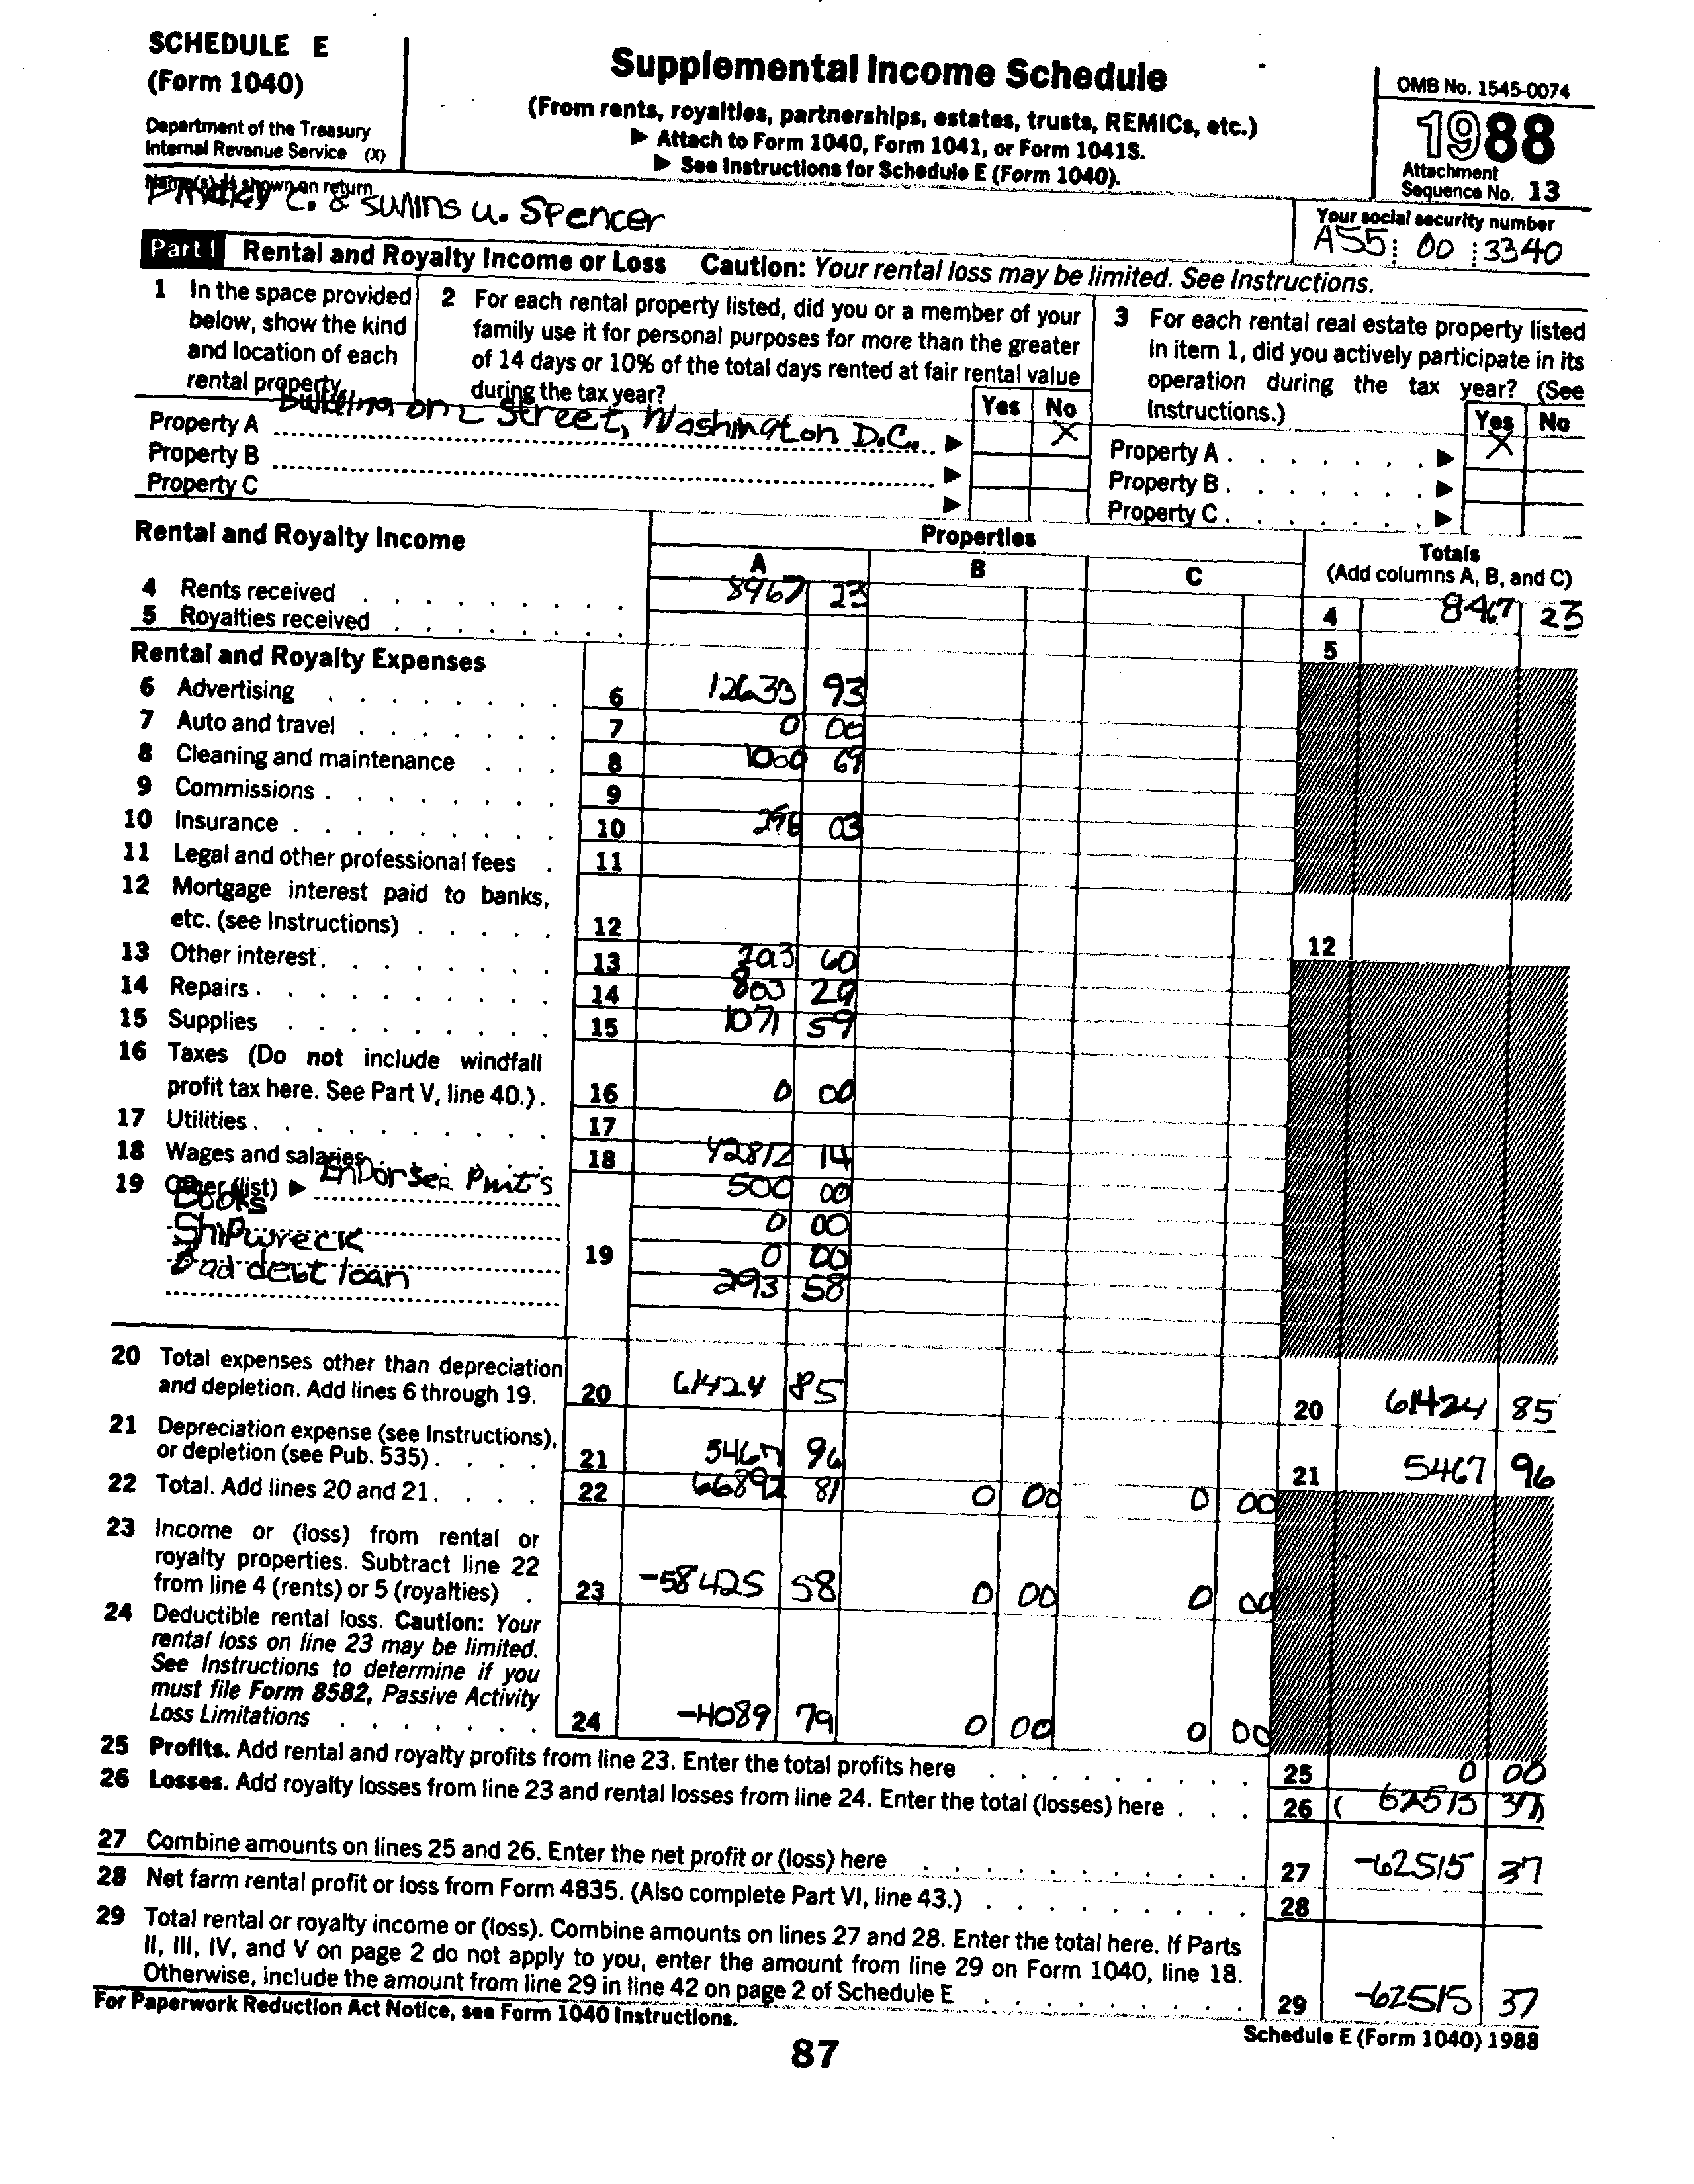 SCHEDULE E
(Form 1040)
Department of the Treasury
Internal Revenue Service (X)
Supplemental Income Schedule
(From rents, royalties, partnerships, estates, trusts, REMICs, etc.)
▶ Attach to Form 1040, Form 1041, or Form 1041S.
▶ See Instructions for Schedule E (Form 1040).
OMB No. 1545-0074
1988
Attachment
Sequence No. 13
Name(s) as shown on return
C. & sunins u. Spencer
Your social security number
A55 00 3340
Part I Rental and Royalty Income or Loss Caution: Your rental loss may be limited. See Instructions.
1 In the space provided below, show the kind and location of each rental property.
2 For each rental property listed, did you or a member of your family use it for personal purposes for more than the greater of 14 days or 10% of the total days rented at fair rental value during the tax year?
3 For each rental real estate property listed in item 1, did you actively participate in its operation during the tax year? (See Instructions.)
Yes No
Yes No
Property A Building on L Street, Washington D.C. ▶ X
Property A ▶ X
Property B ▶
Property B ▶
Property C ▶
Property C ▶
Rental and Royalty Income
Properties
A B C
Totals
(Add columns A, B, and C)
4 Rents received 8467 23 4 8467 23
5 Royalties received 5
Rental and Royalty Expenses
6 Advertising 6 12633 93
7 Auto and travel 7 0 00
8 Cleaning and maintenance 8 1000 69
9 Commissions 9
10 Insurance 10 296 03
11 Legal and other professional fees 11
12 Mortgage interest paid to banks,
etc. (see Instructions) 12 12
13 Other interest 13 60
14 Repairs 14 803 29
15 Supplies 15 1071 59
16 Taxes (Do not include windfall
profit tax here. See Part V, line 40.) 16 0 00
17 Utilities 17
18 Wages and salaries 18 42812 14
19 Other (list) ▶ Endorser Pmt's 500 00
Books 0 00
Shipwreck 19 0 00
Bad debt loan 293 58
20 Total expenses other than depreciation
and depletion. Add lines 6 through 19. 20 61424 85 20 61424 85
21 Depreciation expense (see Instructions),
or depletion (see Pub. 535) 21 5467 96 21 5467 96
22 Total. Add lines 20 and 21 22 66892 81 0 00 0 00
23 Income or (loss) from rental or
royalty properties. Subtract line 22
from line 4 (rents) or 5 (royalties) 23 -58425 58 0 00 0 00
24 Deductible rental loss. Caution: Your
rental loss on line 23 may be limited.
See Instructions to determine if you
must file Form 8582, Passive Activity
Loss Limitations 24 -4089 79 0 00 0 00
25 Profits. Add rental and royalty profits from line 23. Enter the total profits here 25 0 00
26 Losses. Add royalty losses from line 23 and rental losses from line 24. Enter the total (losses) here 26 ( 62515 37)
27 Combine amounts on lines 25 and 26. Enter the net profit or (loss) here 27 -62515 37
28 Net farm rental profit or loss from Form 4835. (Also complete Part VI, line 43.) 28
29 Total rental or royalty income or (loss). Combine amounts on lines 27 and 28. Enter the total here. If Parts
II, III, IV, and V on page 2 do not apply to you, enter the amount from line 29 on Form 1040, line 18.
Otherwise, include the amount from line 29 in line 42 on page 2 of Schedule E 29 -62515 37
For Paperwork Reduction Act Notice, see Form 1040 Instructions.
Schedule E (Form 1040) 1988
87